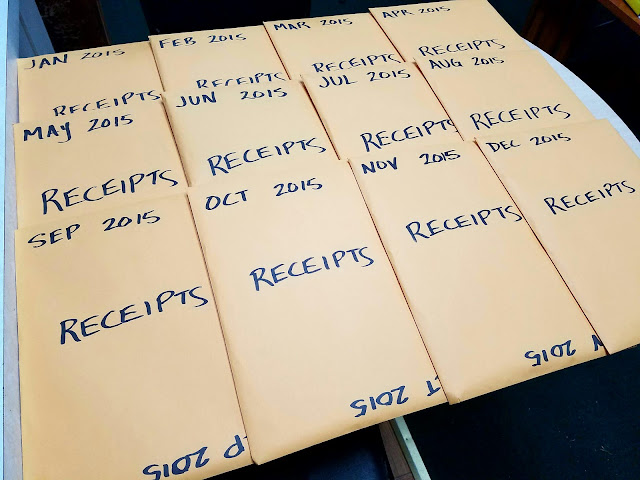 JAN 2015
RECEIPTS
FEB 2015
RECEIPTS
MAR 2015
RECEIPTS
APR 2015
RECEIPTS
MAY 2015
RECEIPTS
JUN 2015
RECEIPTS
JUL 2015
RECEIPTS
AUG 2015
RECEIPTS
SEP 2015
RECEIPTS
P 2015
OCT 2015
RECEIPTS
T 2015
NOV 2015
RECEIPTS
2015
DEC 2015
RECEIPTS